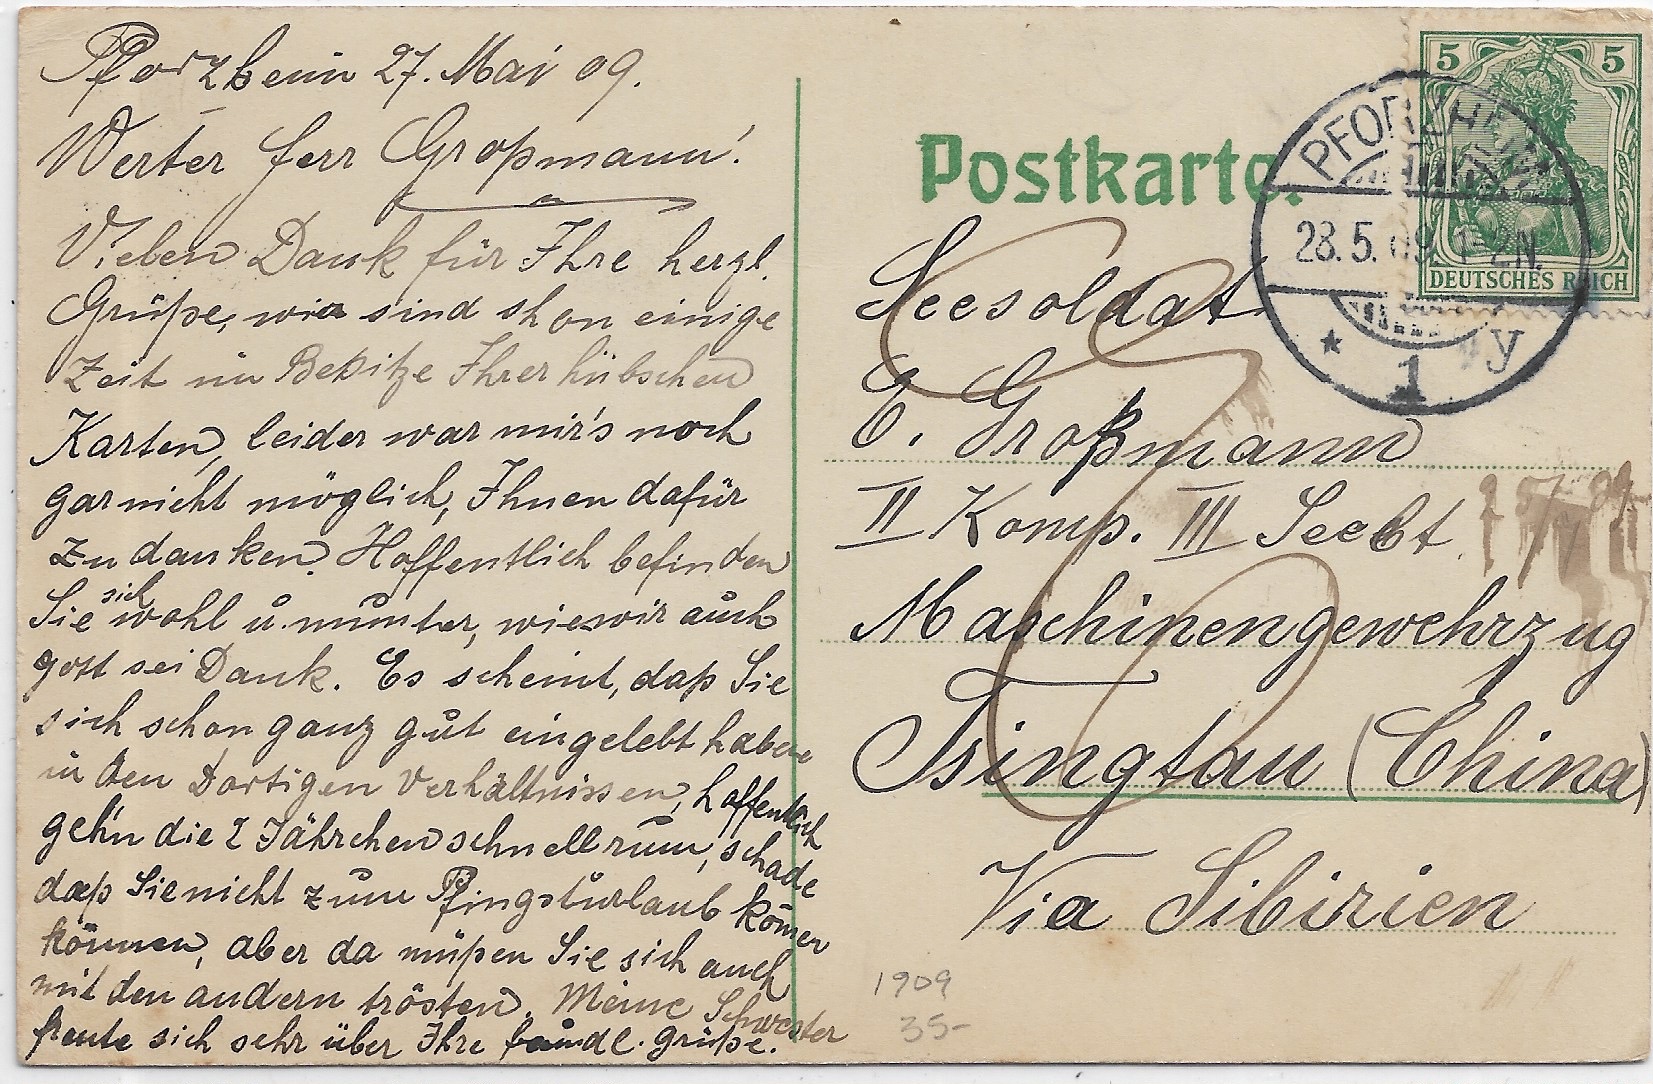 Pforzheim 27. Mai 09.
Werter Herr Großmann!
Vielen Dank für Ihre herzl.
Grüße, wir sind shon einige
Zeit im Besitze Ihrer hübschen
Karten, leider war mir's noch
gar nicht möglich, Ihnen dafür
zu danken. Hoffentlich befinden
Sie sich wohl u. munter, wie wir auch
gott sei Dank. Es scheint, daß Sie
sich schon ganz gut eingelebt haben
in den Dortigen Verhältnissen, hoffentlich
geh'n die 2 Jährchen schnell rum, schade
daß Sie nicht zum Pfingsturlaub komen
können, aber da müßen Sie sich auch
mit den andern trösten. Meine Schwester
freute sich sehr über Ihre Grüße.
Postkarte.
5 5
DEUTSCHES REICH
PFORZHEIM
28.5.09. 1-2N.
* 1 y
Seesoldat
E. Großmann
II Komp. III Seebt.
Maschinengewehrzug
Tsingtau (China)
Via Sibirien
1909
35-